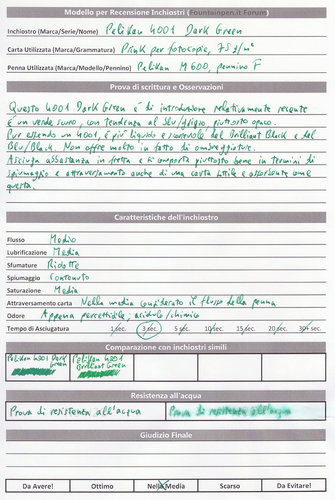 Modello per Recensione Inchiostri (Fountainpen.it Forum)
Inchiostro (Marca/Serie/Nome) Pelikan 4001 Dark Green
Carta Utilizzata (Marca/Grammatura) Pink per fotocopie, 75 g/m²
Penna Utilizzata (Marca/Modello/Pennino) Pelikan M600, pennino F
Prova di scrittura e Osservazioni
Questo 4001 Dark Green è di introduzione relativamente recente
È un verde scuro, con tendenza al blu/grigio, piuttosto opaco.
Pur essendo un 4001, è più liquido e scorrevole del Brilliant Black e del
Blu/Black. Non offre molto in fatto di ombreggiature.
Asciuga abbastanza in fretta e si comporta piuttosto bene in termini di
spiumaggio e attraversamento anche di una carta sottile e assorbente come
questa.
Caratteristiche dell'inchiostro
Flusso Medio
Lubrificazione Media
Sfumature Ridotte
Spiumaggio Contenuto
Saturazione Media
Attraversamento carta Nella media considerato il flusso della penna
Odore Appena percettibile, acidulo/chimico
Tempo di Asciugatura 1 sec. 3 sec. 5 sec. 10 sec. 15 sec. 20 sec. 30+ sec.
Comparazione con inchiostri simili
Pelikan 4001 Dark Green Pelikan 4001 Brilliant Green
Resistenza all'acqua
Prova di resistenza all'acqua Prova di resistenza all'acqua
Giudizio Finale
Da Avere! Ottimo Nella Media Scarso Da Evitare!